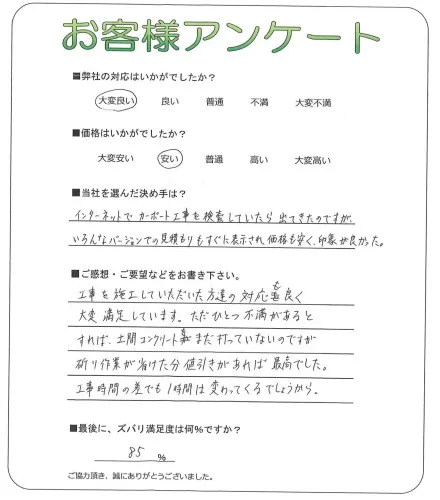 お客様アンケート
■弊社の対応はいかがでしたか？
大変良い 良い 普通 不満 大変不満
■価格はいかがでしたか？
大変安い 安い 普通 高い 大変高い
■当社を選んだ決め手は？
インターネットで カーポート工事を検索していたら 出てきたのですが、
いろんなバージョンでの見積もりもすぐに表示され価格も安く、印象が良かった。
■ご感想・ご要望などをお書き下さい。
工事を施工していただいた方達の対応も良く
大変満足しています。ただひとつ不満があると
すれば、土間コンクリートまだ打っていないのですが
斫り作業が省けた分値引きがあれば最高でした。
工事時間の差でも1時間は変わってくるでしょうから。
■最後に、ズバリ満足度は何%ですか？
85 %
ご協力頂き、誠にありがとうございました。